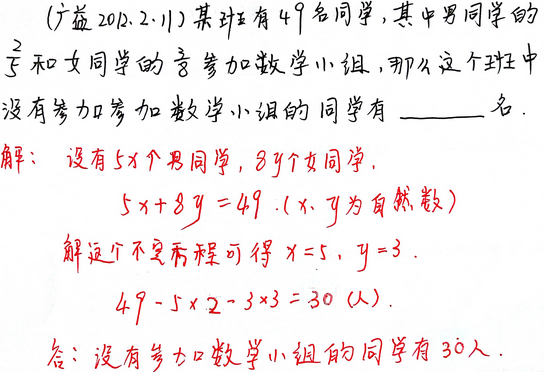 (广益2012.2.11)某班有49名同学,其中男同学的
2/5和女同学的3/8参加数学小组,那么这个班中
没有参加参加数学小组的同学有______名.
解:设有5x个男同学,8y个女同学.
5x+8y=49.(x、y为自然数)
解这个不定方程可得x=5,y=3.
49-5×2-3×3=30(人).
答:没有参加数学小组的同学有30人.